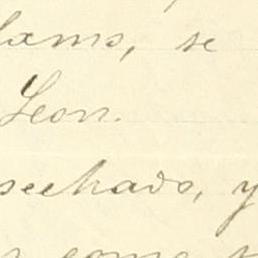 lams, se
Leon.
sechado, y
como